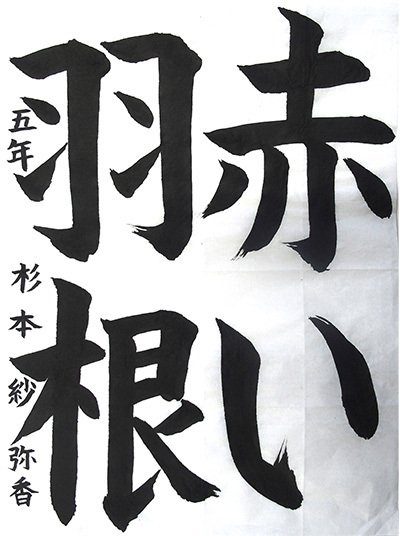 赤い
羽根
五年 杉本紗弥香